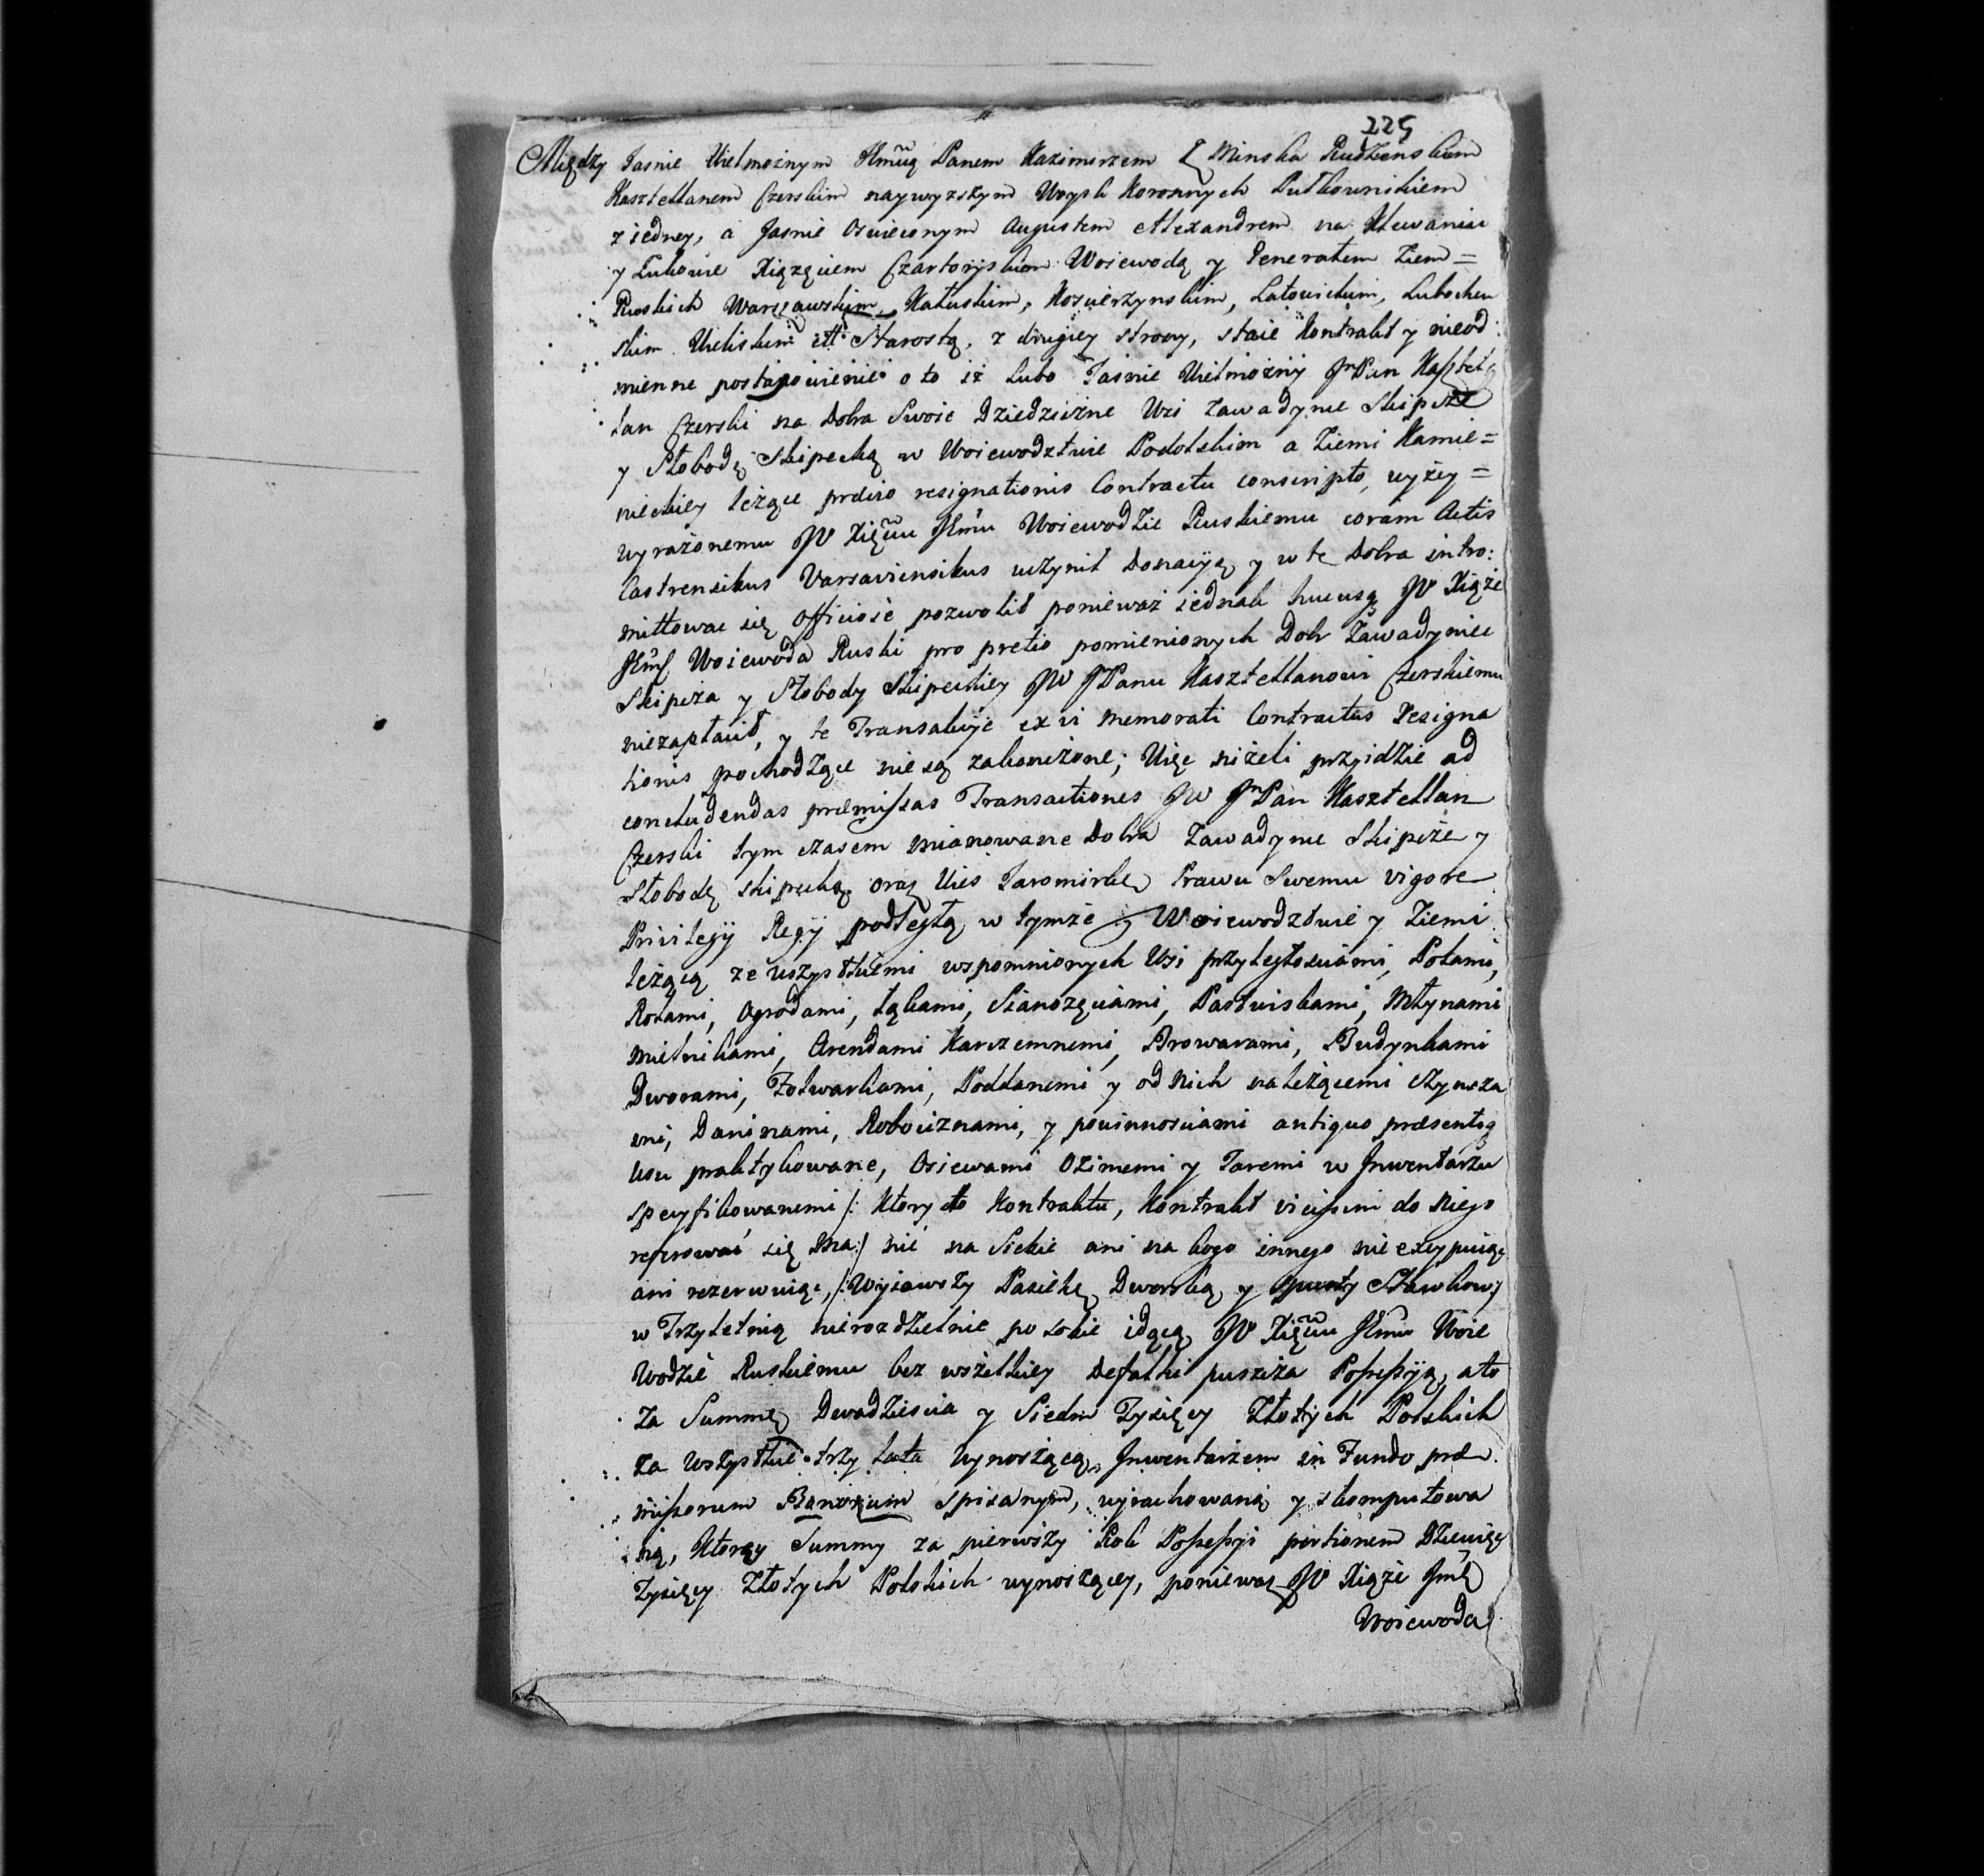 225
Między Jasnie Wielmożnym Jmcią Panem Kazimierzem z Minska Rudzienskiem
Kasztellanem Czerskim naywyzszym Woysk Koronnych Pułkownikiem
z iedney, a Jasnie Oswieconym Augustem Alexandrem na Klewaniu
y Żukowie Xiązęciem Czartoryskim Woiewodą y Generałem Ziem=
Ruskich Warszawskim, Kałuskim, Koscierzynskim, Latowickim, Lubochen
skim Wieliskim ett Starostą, z drugiey strony, staie Kontrakt y nieod:
mienne postanowienie o to iż lubo Jasnie Wielmożny Jm Pan Kasztel
lan Czerski na Dobra Swoie Dziedziczne Wsi Zawadynie Skipcze
y Słobodę Skipecką w Woiewodztwie Podolskim a Ziemi Kamie=
nieckiey leżące prævio resignationis Contractu conscripto, wyżey=
wyrażonemu JW Xięciu Jmci Woiewodzie Ruskiemu coram Actis
Castrensibus Varsaviensibus uczynił Donacyą y w te Dobra intro:
mittowac się Officiose pozwolił ponieważ iednak hucusq JW Xiąże
Jmć Woiewoda Ruski pro pretio pomienionych Dobr Zawadyniec
Skipcza y Słobody Skipeckiey JW JPanu Kasztellanowi Czerskiemu
niezapłacił, y te Transakcye ex vi memorati Contractus Resigna
tionis pochodzące nie są zakonczone; Więc niżeli przyidzie ad
concludendas præmissas Transactiones JW Jm Pan Kasztellan
Czerski tym czasem mianowane Dobra Zawadynie Skipcze y
Słobodę Skipecką oraz Wieś Jaromirkę Prawu Swemu vigore
Privilegij Regij podległą w tymże Woiewodztwie y Ziemi
leżącą ze wszystkiemi wspomnionych Wsi przyległosciami, Polami,
Rolami, Ogrodami, Łąkami, Sianozęciami, Pastwiskami, Młynami
mielnikami, Arendami Karczemnemi, Browarami, Budynkami
Dworami, Folwarkami, Poddanemi y od nich należącemi Czynsza
mi, Daninami, Robociznami, y powinnosciami antiquo præsentiq
usu praktykowane, Osiewami Ozimemi y Jaremi w Inwentarzu
specyfikowanemi /: Ktory do Kontraktu, Kontrakt vicissim do niego
referować się ma :/ nic na Siebie ani na kogo innego nie excypuiąc
ani rezerwuiąc, /: Wyiąwszy Pasiekę Dworską y spusty Stawkow :/
w Trzyletnią nierozdzielnie po sobie idącą JW Xięciu Jmci Woie
wodzie Ruskiemu bez wszelkiey Defalki puszcza Possessyą, a to
za Summę Dwadziescia y Siedm Tysięcy Złotych Polskich
za wszystkie trzy lata wynoszącą, Inwentarzem in Fundo præ
missorum Bonorum spisanym, wyrachowaną y skomputowa
ną, Ktorey Summy za pierwszy Rok Possessyi portionem Dziewięć
Tysięcy Złotych Polskich wynoszącey, ponieważ JW Xiąże Jmć
Woiewoda